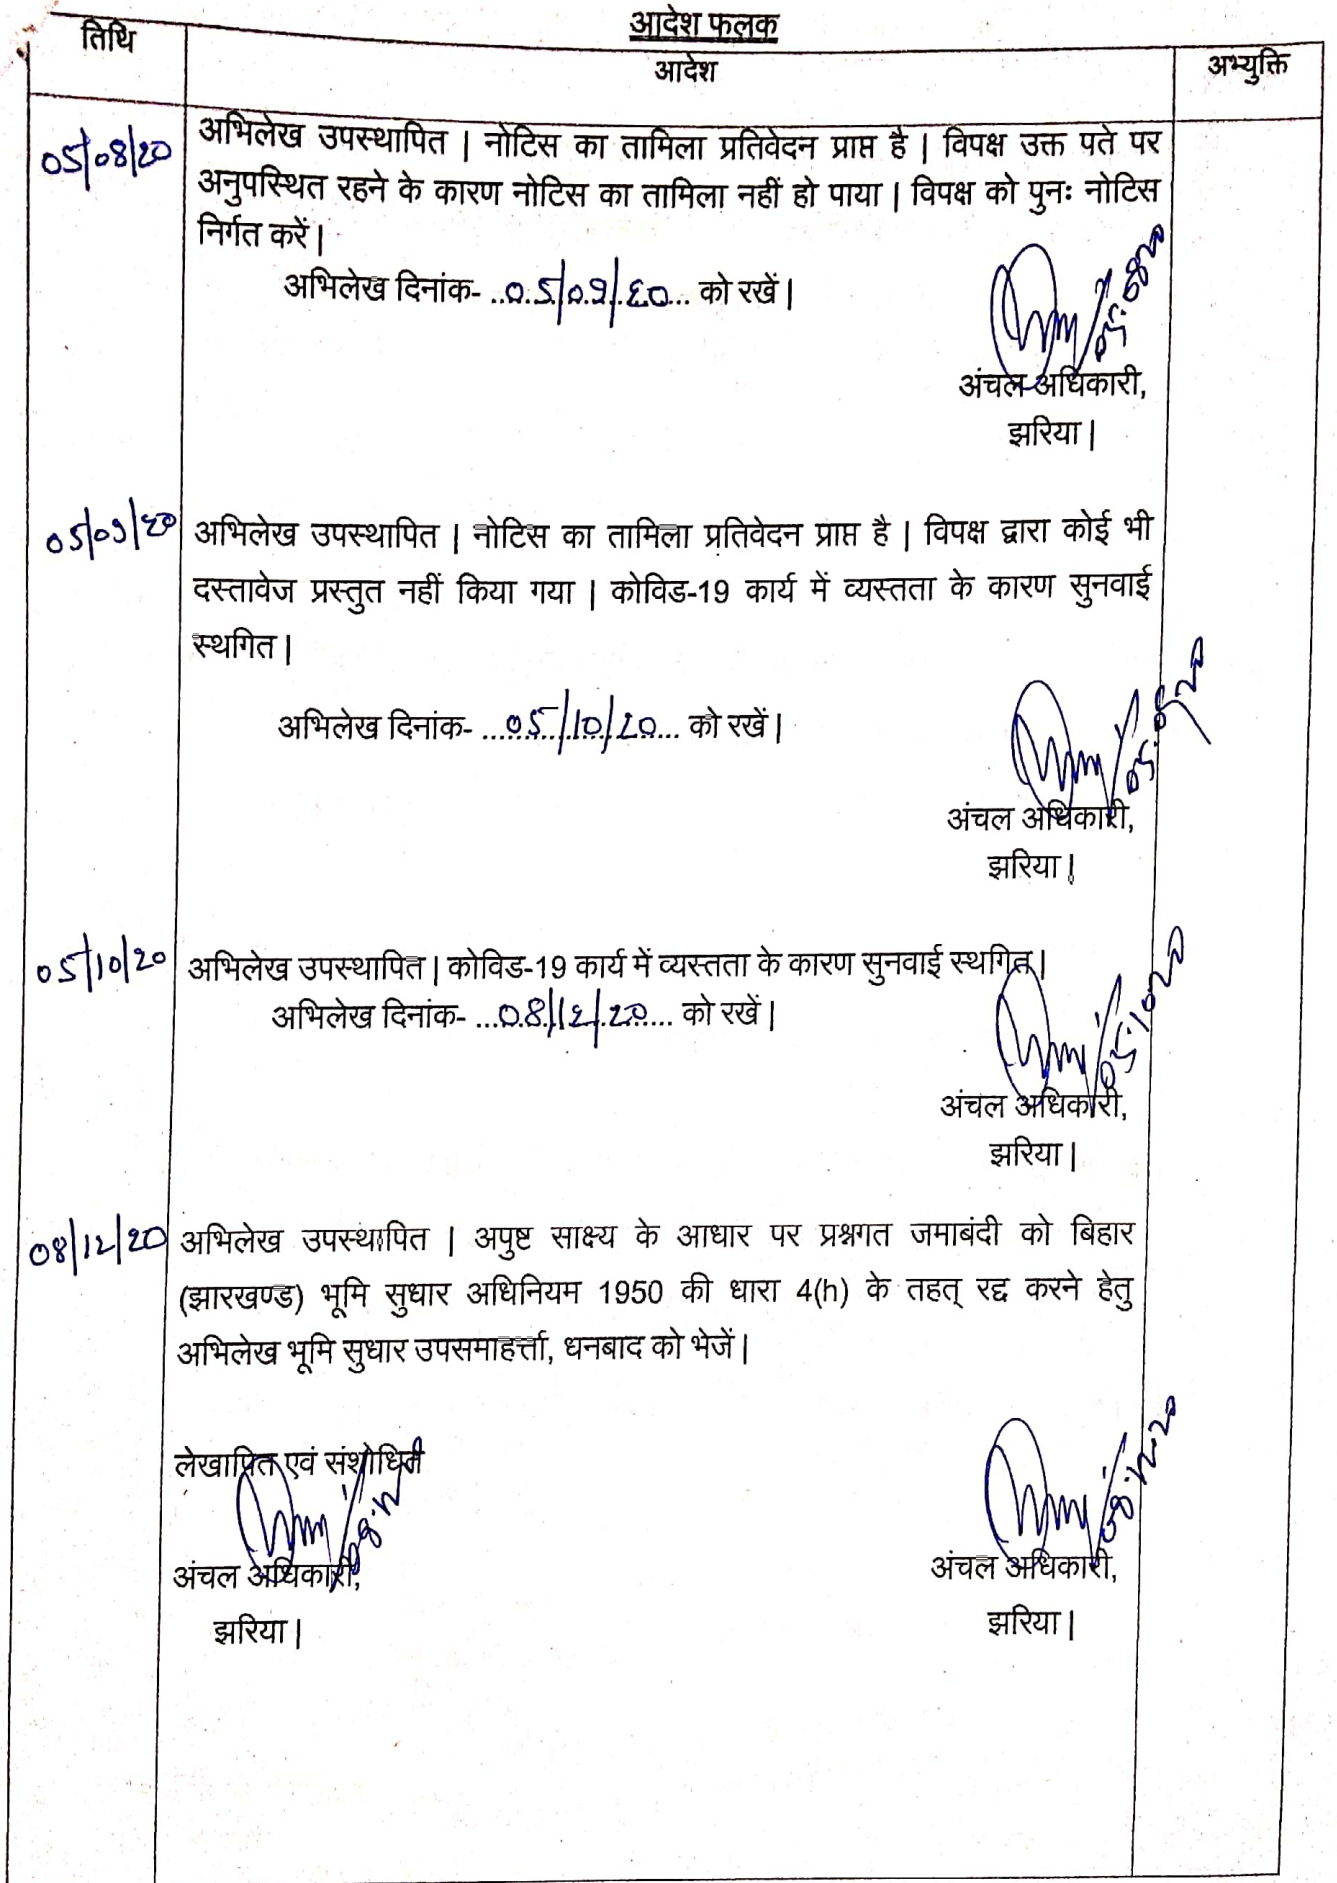 आदेश फलक
तिथि
आदेश
अभ्युक्ति
05/08/20
अभिलेख उपस्थापित | नोटिस का तामिला प्रतिवेदन प्राप्त है | विपक्ष उक्त पते पर
अनुपस्थित रहने के कारण नोटिस का तामिला नहीं हो पाया | विपक्ष को पुनः नोटिस
निर्गत करें |
अभिलेख दिनांक- ...05/09/20... को रखें |
05.08.20
अंचल अधिकारी,
झरिया |
05/09/20
अभिलेख उपस्थापित | नोटिस का तामिला प्रतिवेदन प्राप्त है | विपक्ष द्वारा कोई भी
दस्तावेज प्रस्तुत नहीं किया गया | कोविड-19 कार्य में व्यस्तता के कारण सुनवाई
स्थगित |
अभिलेख दिनांक- ...05/10/20... को रखें |
अंचल अधिकारी,
झरिया |
05/10/20
अभिलेख उपस्थापित | कोविड-19 कार्य में व्यस्तता के कारण सुनवाई स्थगित |
अभिलेख दिनांक- ...08/12/20... को रखें |
05.10.20
अंचल अधिकारी,
झरिया |
08/12/20
अभिलेख उपस्थापित | अपुष्ट साक्ष्य के आधार पर प्रश्नगत जमाबंदी को बिहार
(झारखण्ड) भूमि सुधार अधिनियम 1950 की धारा 4(h) के तहत् रद्द करने हेतु
अभिलेख भूमि सुधार उपसमाहर्त्ता, धनबाद को भेजें |
लेखापित एवं संशोधित
08.12.20
अंचल अधिकारी,
अंचल अधिकारी,
झरिया |
झरिया |